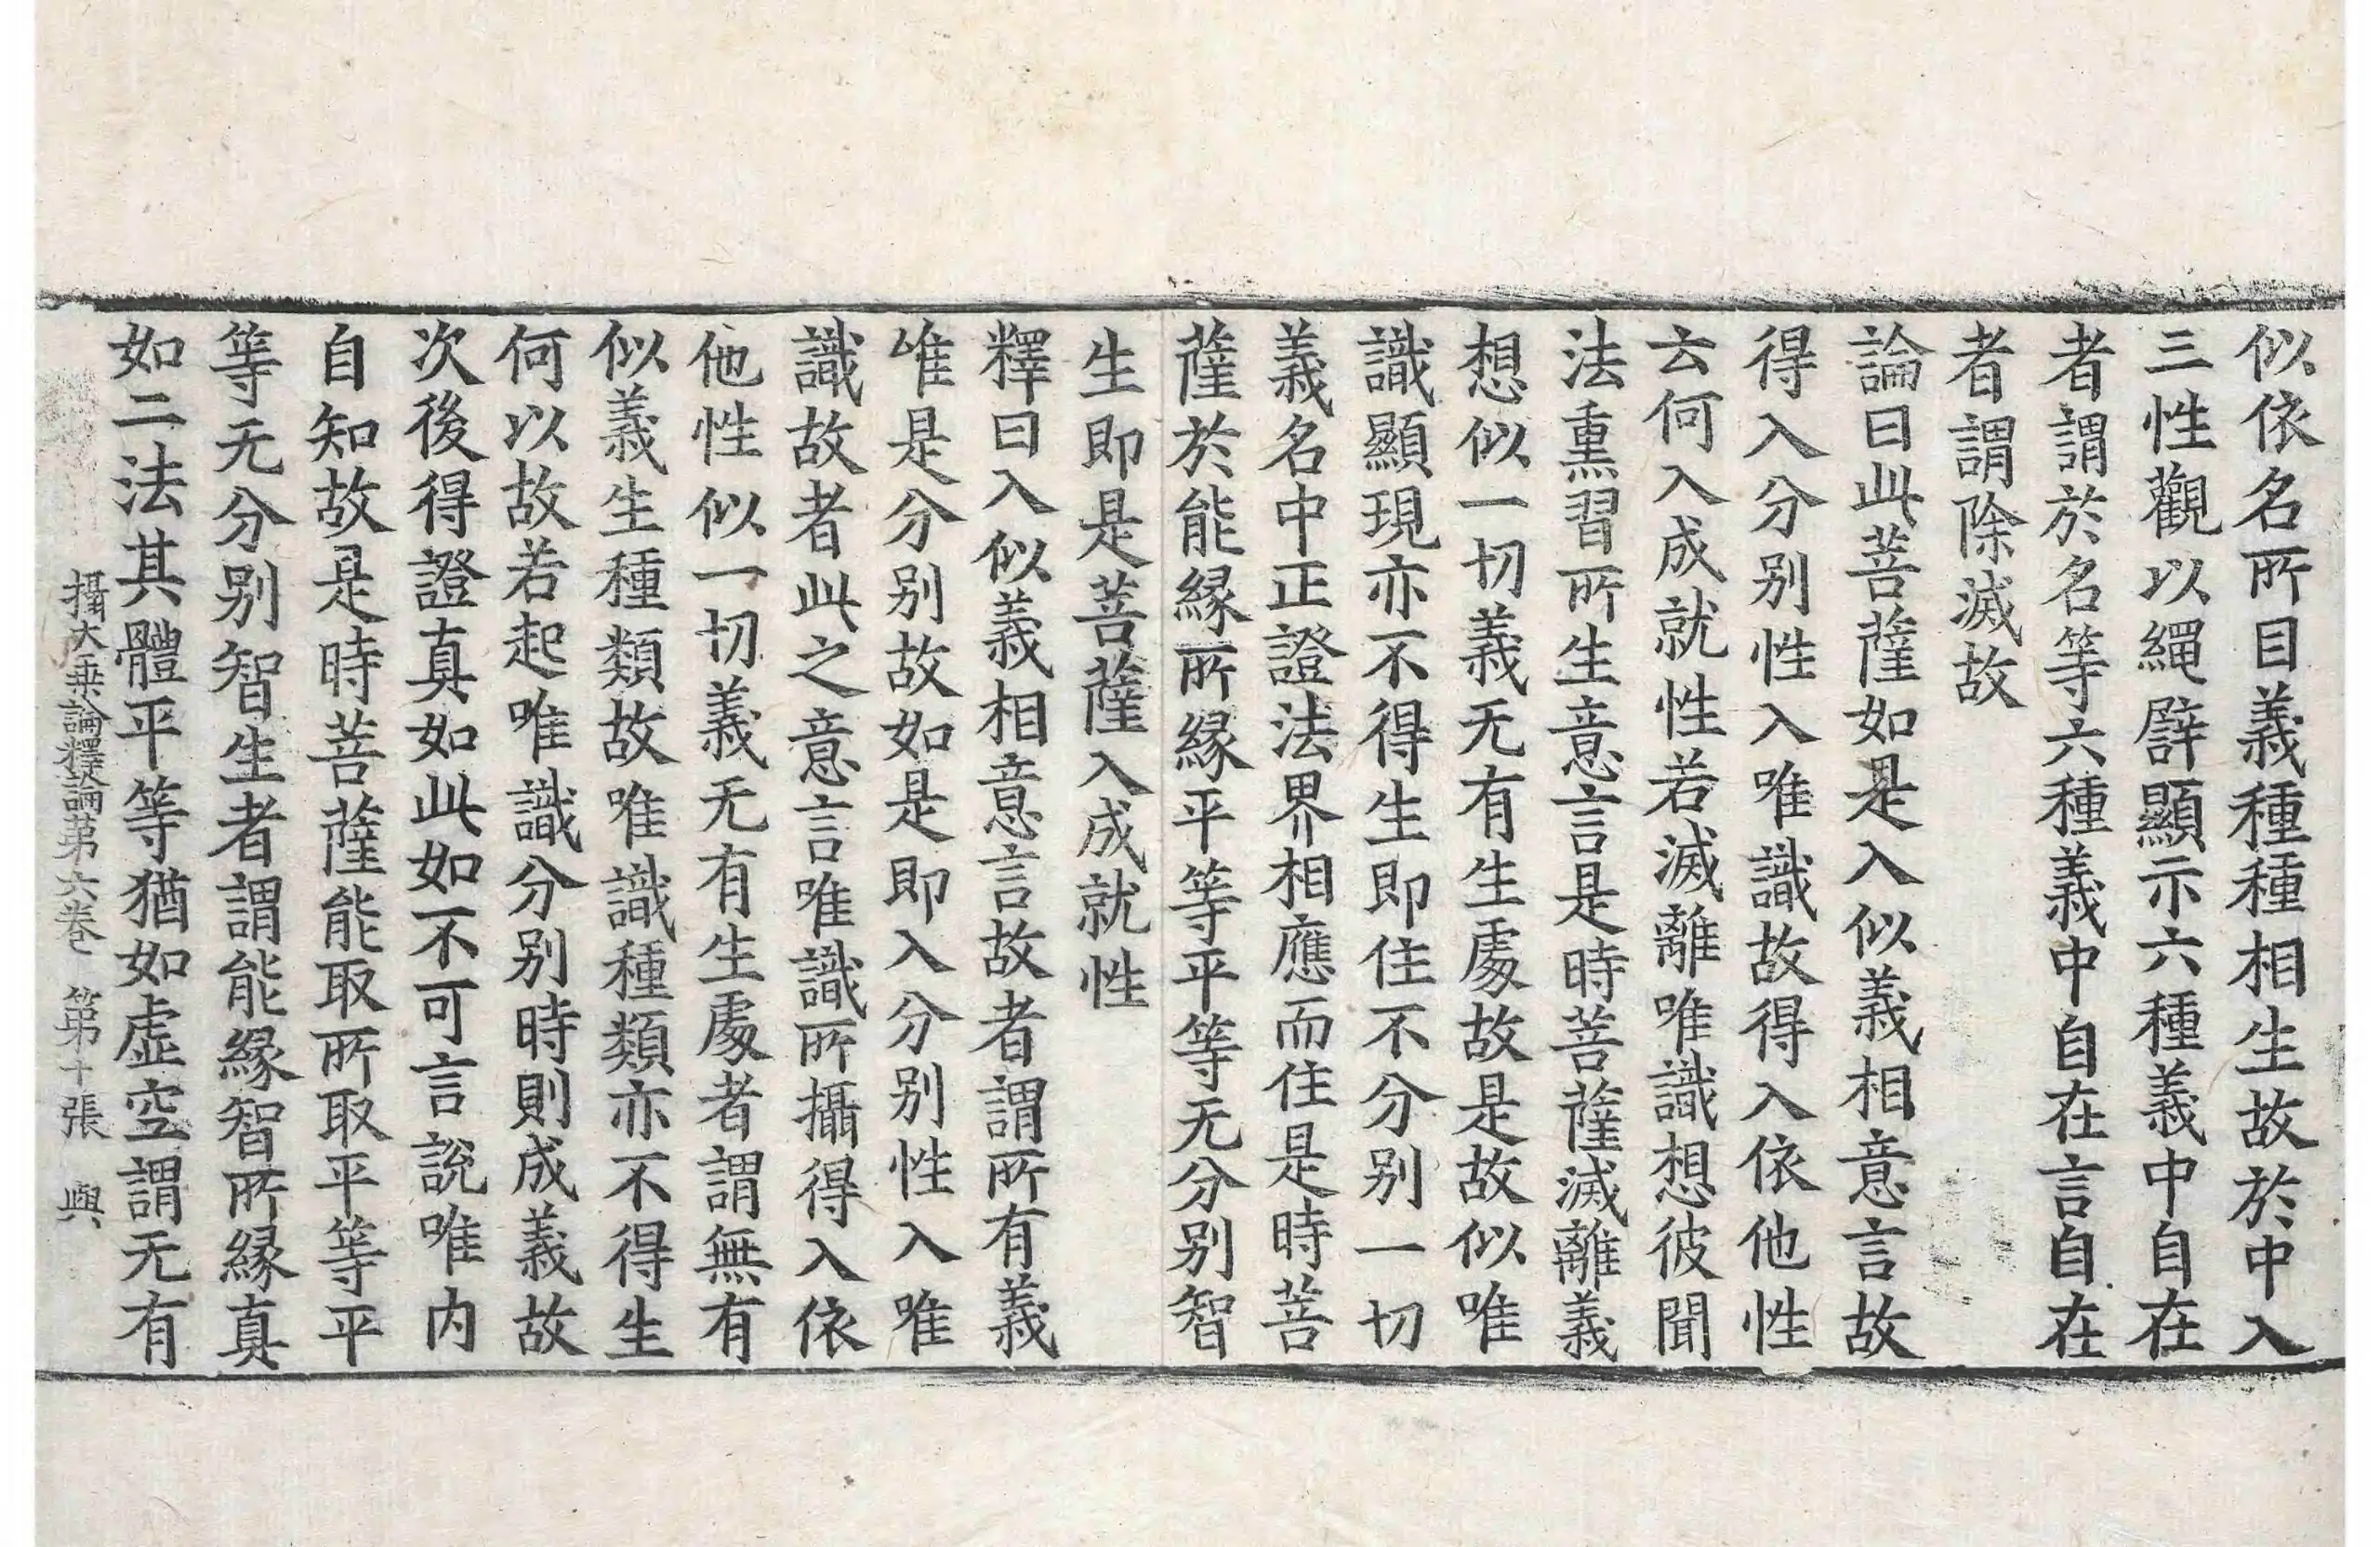 似依名所目義種種相生故於中入
三性觀以繩譬顯示六種義中自在
者謂於名等六種義中自在言自在
者謂除滅故
論曰此菩薩如是入似義相意言故
得入分别性入唯識故得入依他性
云何入成就性若滅離唯識想彼聞
法熏習所生意言是時菩薩滅離義
想似一切義无有生處故是故似唯
識顯現亦不得生即住不分别一切
義名中正證法界相應而住是時菩
薩於能緣所緣平等平等无分别智
生即是菩薩入成就性
釋曰入似義相意言故者謂所有義
唯是分别故如是即入分别性入唯
識故者此之意言唯識所攝得入依
他性似一切義无有生處者謂無有
似義生種類故唯識種類亦不得生
何以故若起唯識分别時則成義故
次後得證真如此如不可言說唯内
自知故是時菩薩能取所取平等平
等无分别智生者謂能緣智所緣真
如二法其體平等猶如虛空謂无有
攝大乘論釋論第六卷 第十張 與